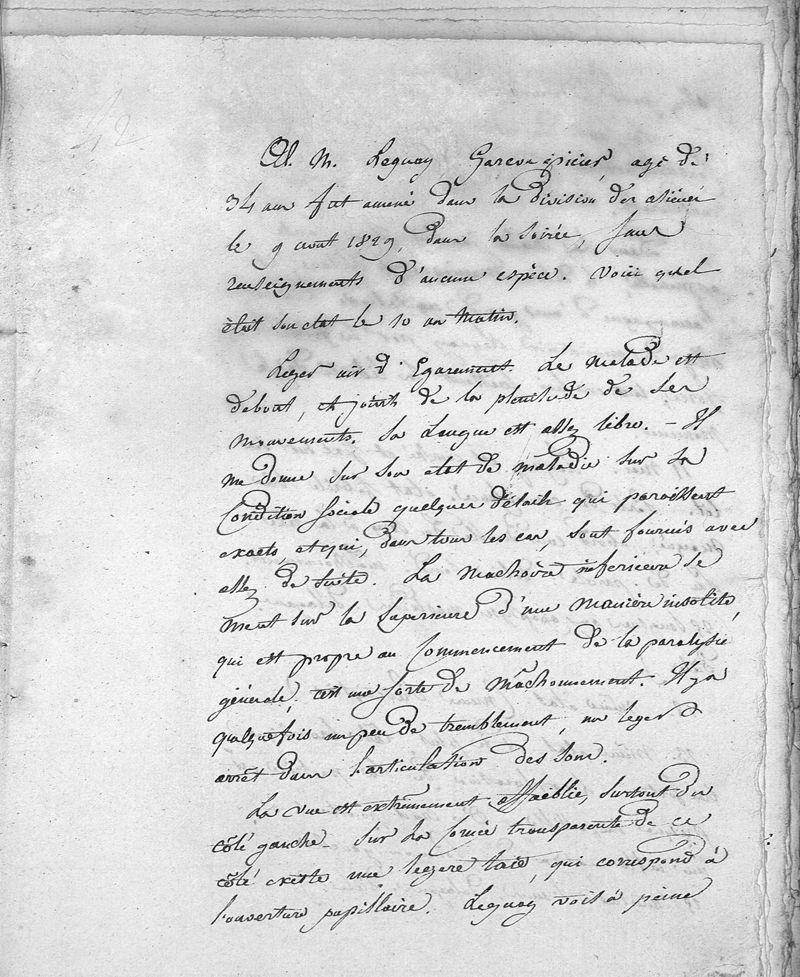 M. Leguay, Garcon épicier, agé de
34 ans fut amené dans la division des aliénés
le 9 aout 1829, dans la soirée, sans
renseignements d'aucune espèce. Voici quel
était son etat le 10 au Matin.
Leger air d'Egarement. Le malade est
debout, et jouit de la plenitude de ses
mouvements. Sa Langue est assez libre. — Il
me donne sur son etat de maladie sur sa
Condition Sociale quelques détails qui paroissent
exacts, et qui, dans tous les cas, sont fournis avec
assez de suite. La Machoire inferieure se
meut sur la Superieure d'une Manière insolite,
qui est propre au Commencement de la paralysie
générale, c'est une sorte de Machonnement. Il y a
quelquefois un peu de tremblement, un leger
arrêt dans l'articulation des sons.
La vue est extrêmement affaiblie, surtout du
côté gauche. Sur la Cornée transparente de ce
côté existe une legere taie, qui correspond à
l'ouverture pupillaire. Leguay voit à peine